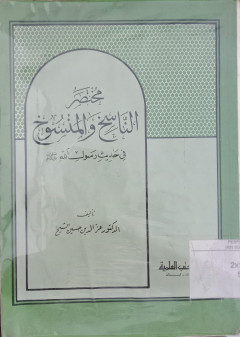 مختصر
الناسخ والمنسوخ
في حديث رسول الله ﷺ
تأليف
الدكتور عز الدين حسين الشيخ
العلمية